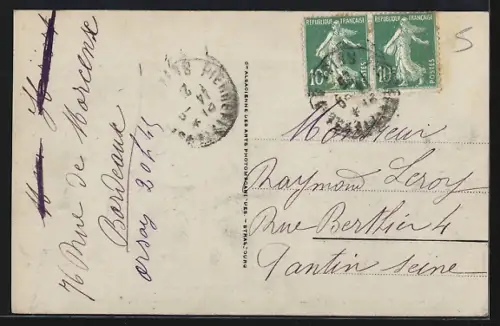 76 Rue de Morcenx
Bordeaux
orsay 20449
Cie ALSACIENNE DES ARTS PHOTOMECANIQUES - STRASBOURG
RÉPUBLIQUE FRANÇAISE
10c POSTES
RÉPUBLIQUE FRANÇAISE
10c POSTES
5
Monsieur
Raymond Leroy
Rue Berthier 4
Pantin Seine